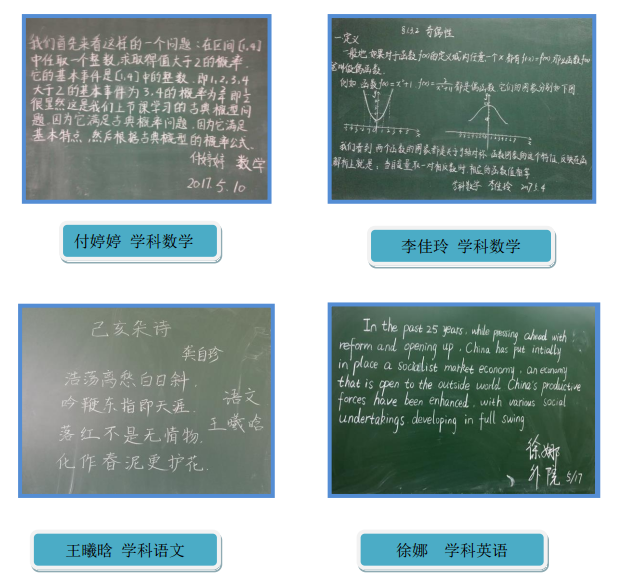 我们首先来看这样的一个问题:在区间[1,4]
中任取一个整数,求取得值大于2的概率.
它的基本事件是[1,4]中的整数,即1,2,3,4
大于2的基本事件为3,4的概率为
很显然这是我们上节课学习的古典概型问
题,因为它满足古典概率问题,因为它满足
基本特点,然后根据古典概型的概率公式.
付婷婷 数学
2017.5.10
付婷婷 学科数学
§1.3.2 奇偶性
一定义
一般地:如果对于函数f(x)的定义域内任意一个x都有f(-x)=f(x),那么函数f(x)
就叫做偶函数.
例如,函数f(x)=x²+1, 都是偶函数,它们的图象分别如下图
我们看到,两个函数的图象都是关于y轴对称.函数图象的这个特征,反映在函
数解析式上就是:当自变量取一对相反数时,相应的函数值相等
学科数学 李佳玲 2017.5.4
李佳玲 学科数学
己亥杂诗
龚自珍
浩荡离愁白日斜.
吟鞭东指即天涯.
落红不是无情物.
化作春泥更护花.
语文
王曦晗
王曦晗 学科语文
In the past 25 years, while pressing ahead with
reform and opening up, China has put intially
in place a socialist market economy, an economy
that is open to the outside world. China's productive
forces have been enhanced, with various social
undertakings developing in full swing
徐娜
外院 5/17
徐娜 学科英语